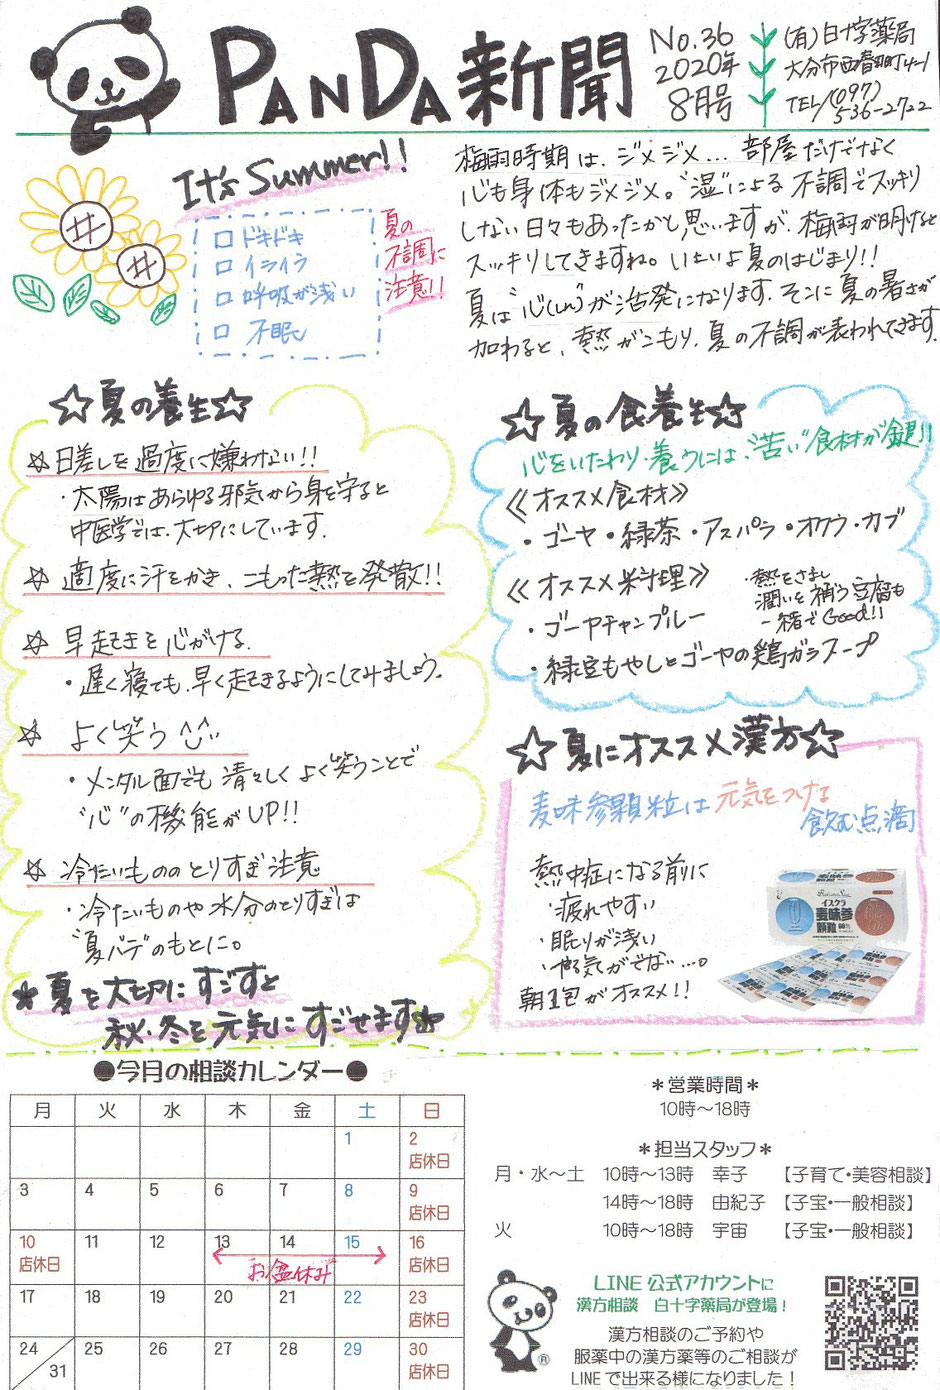 PANDA新聞
No.36
2020年
8月号
(有)白十字薬局
大分市西春日町4-1
TEL/(097)
536-2722
It's Summer!!
□ ドキドキ
□ イライラ
□ 呼吸が浅い
□ 不眠
夏の
不調に
注意!!
梅雨時期は、ジメジメ… 部屋だけでなく
心も身体もジメジメ。"湿"による不調でスッキリ
しない日々もあったかと思いますが、梅雨が明けると
スッキリしてきますね。いよいよ夏のはじまり!!
夏は"心(しん)"が活発になります。そこに夏の暑さが
加わると、熱がこもり、夏の不調が表われてきます。
☆夏の養生☆
☆ 日差しを過度に嫌わない!!
・太陽はあらゆる邪気から身を守ると
中医学では、大切にしています。
☆ 適度に汗をかき、こもった熱を発散!!
☆ 早起きを心がける。
・遅く寝ても、早く起きるようにしてみましょう。
☆ よく笑う ^^
・メンタル面でも清々しくよく笑うことで
"心"の機能がUP!!
☆ 冷たいもののとりすぎ注意
・冷たいものや水分のとりすぎは
"夏バテ"のもとに。
★夏を大切にすごすと
秋・冬を元気にすごせます★
☆夏の食養生☆
心をいたわり、養うには、"苦い"食材が鍵!!
《オススメ食材》
・ゴーヤ・緑茶・アスパラ・オクラ・カブ
《オススメ料理》
・ゴーヤチャンプルー
・熱をさまし
潤いを補う豆腐も
一緒でGood!!
・緑豆もやしとゴーヤの鶏ガラスープ
☆夏にオススメ漢方☆
麦味参顆粒は元気をつける
飲む点滴
熱中症になる前に
・疲れやすい
・眠りが浅い
・やる気がでない…。
朝1包がオススメ!!
イスクラ
麦味参
顆粒
●今月の相談カレンダー●
月 火 水 木 金 土 日
1 2
店休日
3 4 5 6 7 8 9
店休日
10 11 12 13 14 15 16
店休日 お盆休み 店休日
17 18 19 20 21 22 23
店休日
24/31 25 26 27 28 29 30
店休日
＊営業時間＊
10時～18時
＊担当スタッフ＊
月・水～土 10時～13時 幸子 【子育て・美容相談】
14時～18時 由紀子 【子宝・一般相談】
火 10時～18時 宇宙 【子宝・一般相談】
LINE 公式アカウントに
漢方相談 白十字薬局が登場！
漢方相談のご予約や
服薬中の漢方薬等のご相談が
LINEで出来る様になりました！